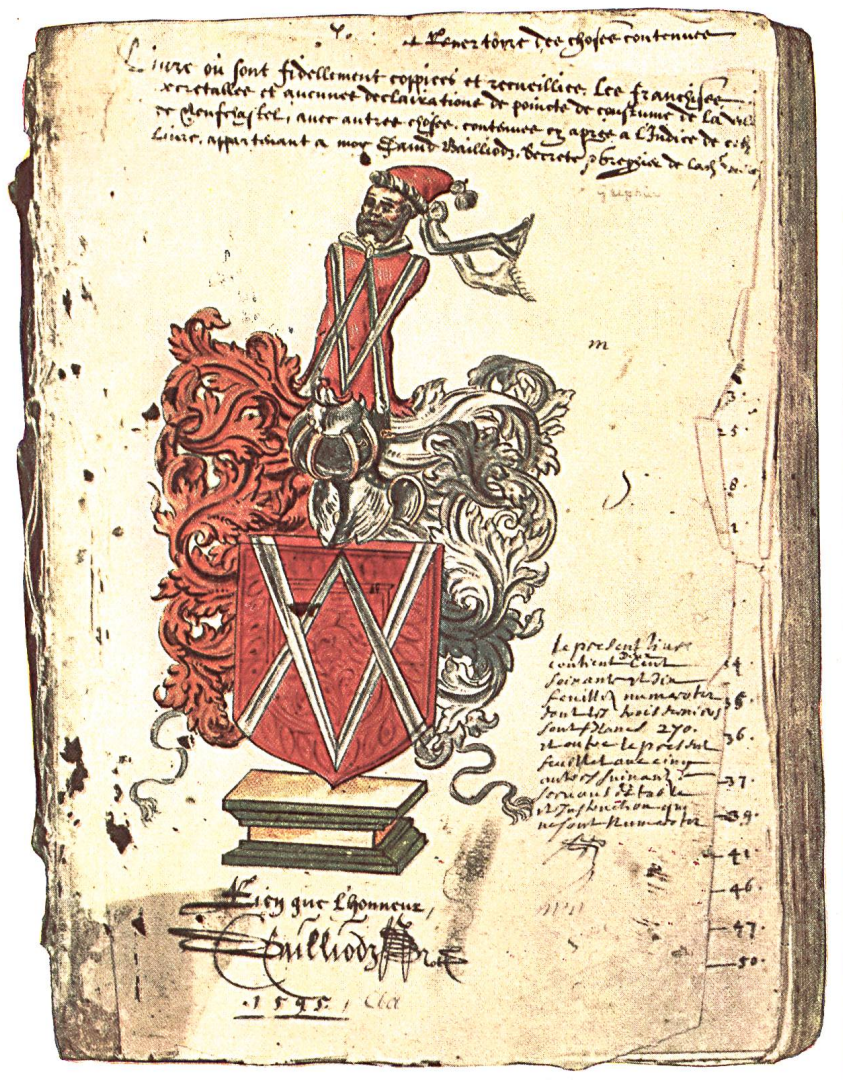 Repertoire des choses contenues
Livre où sont fidellement coppiees et recueillies, les franchises
decretalles et aucunes declairations de poincts de coustume de la ville
de Neufchastel, avec autres choses contenues cy apres a l'Indice de cest
Livre, appartenant a moy David Bailliodz, Secretе
greffier
m
3.
25
8
1
le present livre
contient deux cent
soixante et dix
feuillis numerotez
dont les trois derniers
sont blancs 270.
et outre le present
feuillet avec cinq
autres suivants
servant de table
et Instruction qui
ne sont numerotez
4.
35
36.
37.
39.
41
46.
47.
50.
Rien que l'honneur,
Bailliodz
.1595.